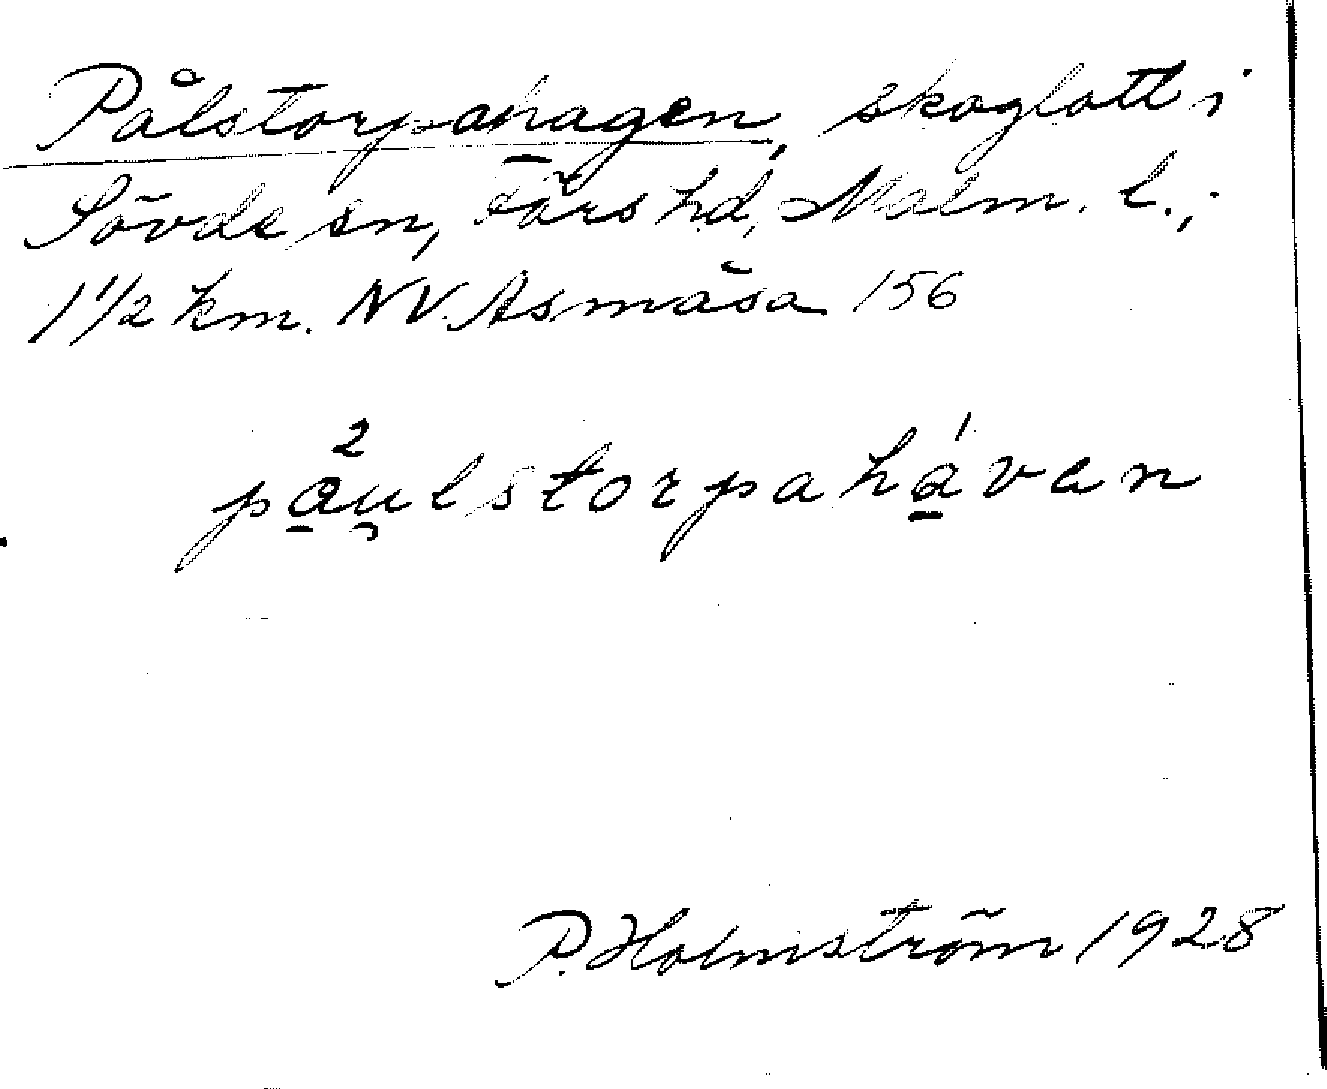 Pålstorpahagen, skoglott i
Sövde sn, Färs hd, Malm. l.;
1 1/2 km. NV. Asmåsa 156
2
paulstorpahávan
P. Holmström 1928